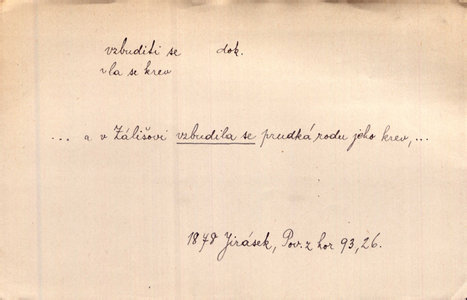 vzbuditi se dok.
vla se krev
... a v Zálišovi vzbudila se prudká rodu jeho krev,...
1878 Jirásek, Pov. z hor 93,26.